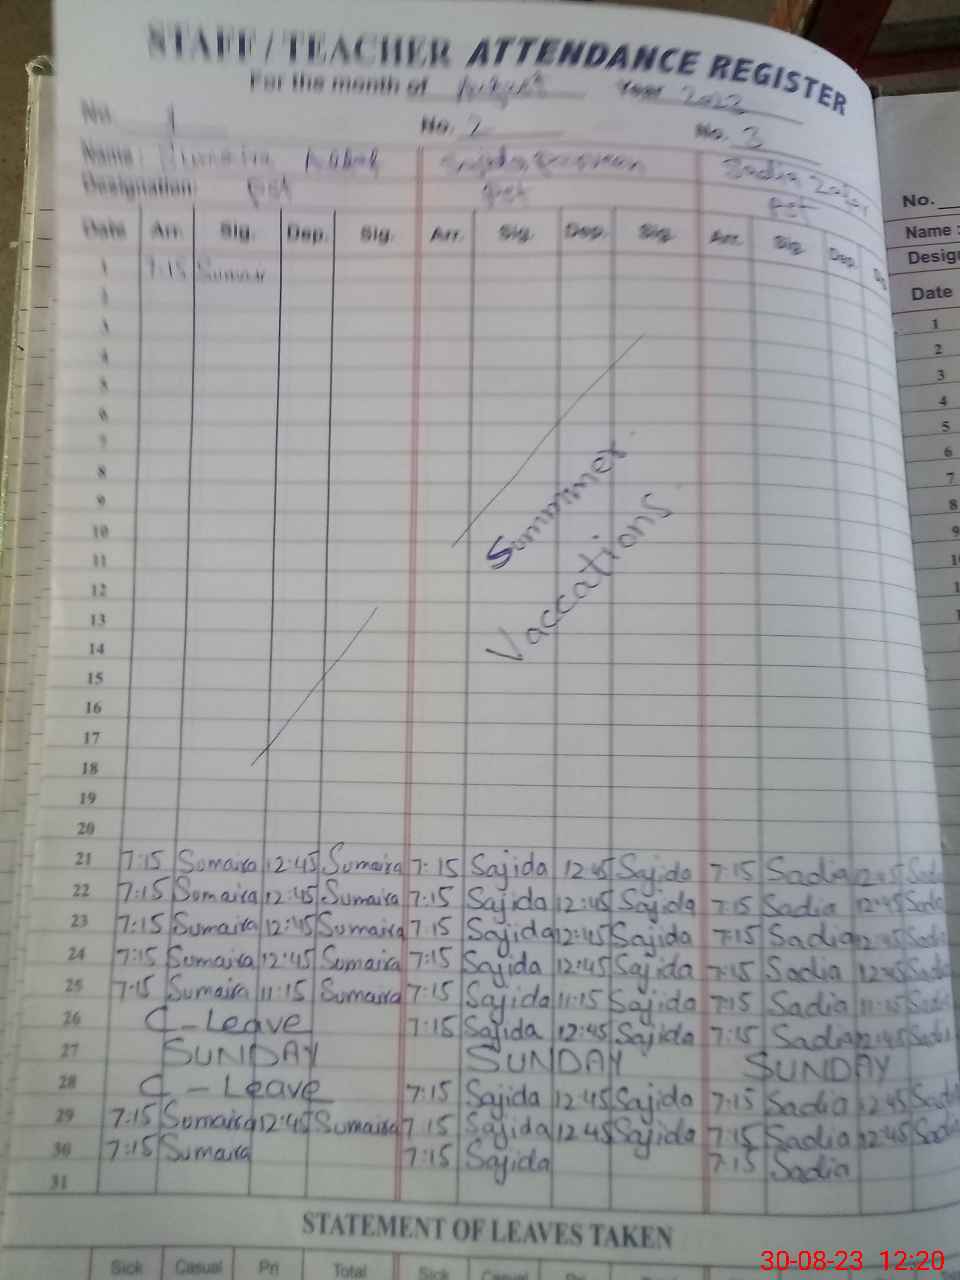 STAFF / TEACHER ATTENDANCE REGISTER
For the month of August Year 2023
No. 1 No. 2 No. 3
Name : Sajida Sadia Zafar
Designation: Pst Pst Pst
Date Arr. Sig. Dep. Sig. Arr. Sig. Dep. Sig. Arr. Sig. Dep.
1 7:15 Sumair
2
3
4
5
6
7
8
9
10
11
12
13
14
15
16
17
18
19
20
Summmer
Vaccations
21 7:15 Sumaira 12:45 Sumaira 7:15 Sajida 12:45 Sajida 7:15 Sadia 12:45 Sadia
22 7:15 Sumaira 12:45 Sumaira 7:15 Sajida 12:45 Sajida 7:15 Sadia 12:45 Sadia
23 7:15 Sumaira 12:45 Sumaira 7:15 Sajida 12:45 Sajida 7:15 Sadia 12:45 Sadia
24 7:15 Sumaira 12:45 Sumaira 7:15 Sajida 12:45 Sajida 7:15 Sadia 12:45 Sadia
25 7:15 Sumaira 11:15 Sumaira 7:15 Sajida 11:15 Sajida 7:15 Sadia 11:15 Sadia
26 C-Leave 7:15 Sajida 12:45 Sajida 7:15 Sadia 12:45 Sadia
27 SUNDAY SUNDAY SUNDAY
28 C-Leave 7:15 Sajida 12:45 Sajida 7:15 Sadia 12:45 Sadia
29 7:15 Sumaira 12:45 Sumaira 7:15 Sajida 12:45 Sajida 7:15 Sadia 12:45 Sadia
30 7:15 Sumaira 7:15 Sajida 7:15 Sadia
31
STATEMENT OF LEAVES TAKEN
Sick Casual Pri Total Sick Casual
No.
Name :
Desig
Date
1
2
3
4
5
6
7
8
9
30-08-23 12:20